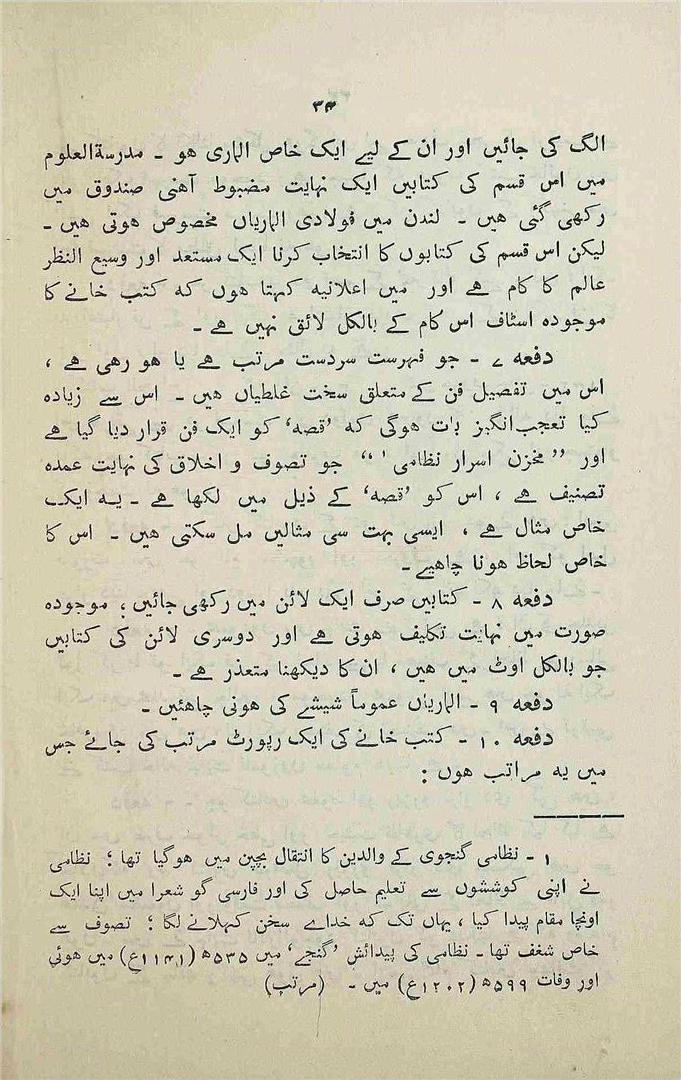 ۳۴
الگ کی جائیں اور ان کے لیے ایک خاص الماری ہو ۔ مدرسۃ العلوم
میں اس قسم کی کتابیں ایک نہایت مضبوط آھنی صندوق میں
رکھی گئی ھیں ۔ لندن میں فولادی الماریاں مخصوص ھوتی ھیں ۔
لیکن اس قسم کی کتابوں کا انتخاب کرنا ایک مستعد اور وسیع النظر
عالم کا کام ھے اور میں اعلانیہ کہتا ھوں کہ کتب خانے کا
موجودہ اسٹاف اس کام کے بالکل لائق نہیں ھے ۔
دفعہ ۷ ۔ جو فہرست سردست مرتب ھے یا ھو رھی ھے ،
اس میں تفصیل فن کے متعلق سخت غلطیاں ھیں ۔ اس سے زیادہ
کیا تعجب انگیز بات ھوگی کہ ’قصہ‘ کو ایک فن قرار دیا گیا ھے
اور ”مخزن اسرار نظامی۱“ جو تصوف و اخلاق کی نہایت عمدہ
تصنیف ھے ، اس کو ’قصہ‘ کے ذیل میں لکھا ھے ۔ یہ ایک
خاص مثال ھے ، ایسی بہت سی مثالیں مل سکتی ھیں ۔ اس کا
خاص لحاظ ھونا چاھیے ۔
دفعہ ۸ ۔ کتابیں صرف ایک لائن میں رکھی جائیں ؛ موجودہ
صورت میں نہایت تکلیف ھوتی ھے اور دوسری لائن کی کتابیں
جو بالکل اوٹ میں ھیں ، ان کا دیکھنا متعذر ھے ۔
دفعہ ۹ ۔ الماریاں عموماً شیشے کی ھونی چاھئیں ۔
دفعہ ۱۰ ۔ کتب خانے کی ایک رپورٹ مرتب کی جائے جس
میں یہ مراتب ھوں :
۱ ۔ نظامی گنجوی کے والدین کا انتقال بچپن میں ھوگیا تھا ؛ نظامی
نے اپنی کوششوں سے تعلیم حاصل کی اور فارسی گو شعرا میں اپنا ایک
اونچا مقام پیدا کیا ، یہاں تک کہ خداے سخن کہلانے لگا ؛ تصوف سے
خاص شغف تھا ۔ نظامی کی پیدائش ’گنجے‘ میں ۵۳۵ھ (۱۱۴۱ع) میں ھوئی
اور وفات ۵۹۹ھ (۱۲۰۲ع) میں ۔ (مرتب)